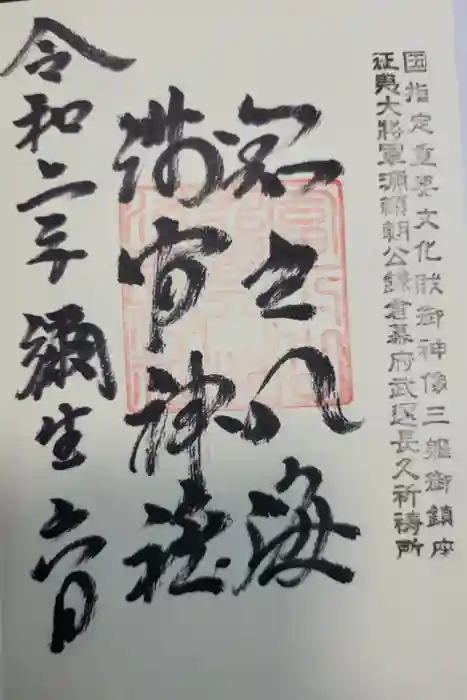 国指定重要文化財御神像三軀御鎮座
征夷大将軍源頼朝公鎌倉幕府武運長久祈祷所
八海
宮神社
令和二年彌生六日